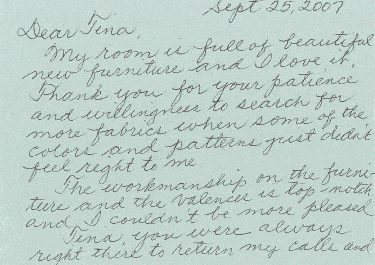 Sept 25, 2007
Dear Tina,
My room is full of beautiful
new furniture and I love it.
Thank you for your patience
and willingness to search for
more fabrics when some of the
colors and patterns just didn't
feel right to me
The workmanship on the furni-
ture and the valences is top-notch
and I couldn't be more pleased
Tina, you were always
right there to return my calls and